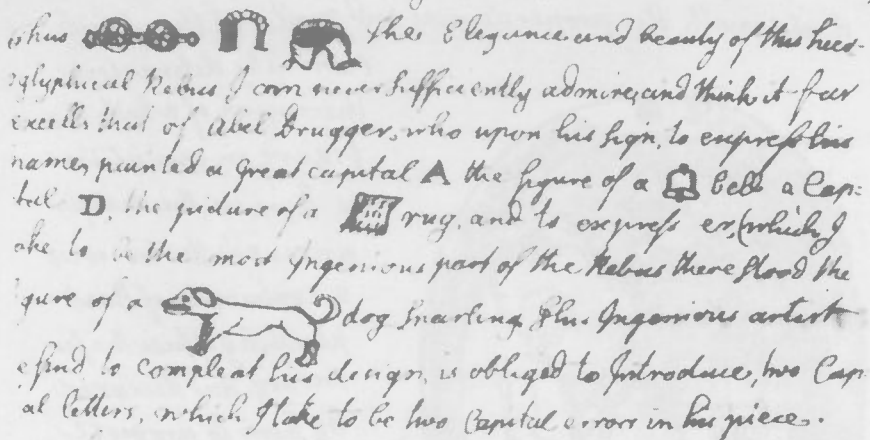 thus the Elegance and beauty of this hier-
oglyphical Rebus I can never sufficiently admire, and think it far
excells that of Abel Drugger, who upon his sign, to express his
name, painted a great capital A the figure of a bell a Cap-
tal D, the picture of a rug, and to express er, (which I
take to be the most Ingenious part of the Rebus there stood the
igure of a dog snarling, this Ingenious artist
to compleat his design, is obliged to Introduce, two Cap-
al letters, which I take to be two Capital errors in his piece.